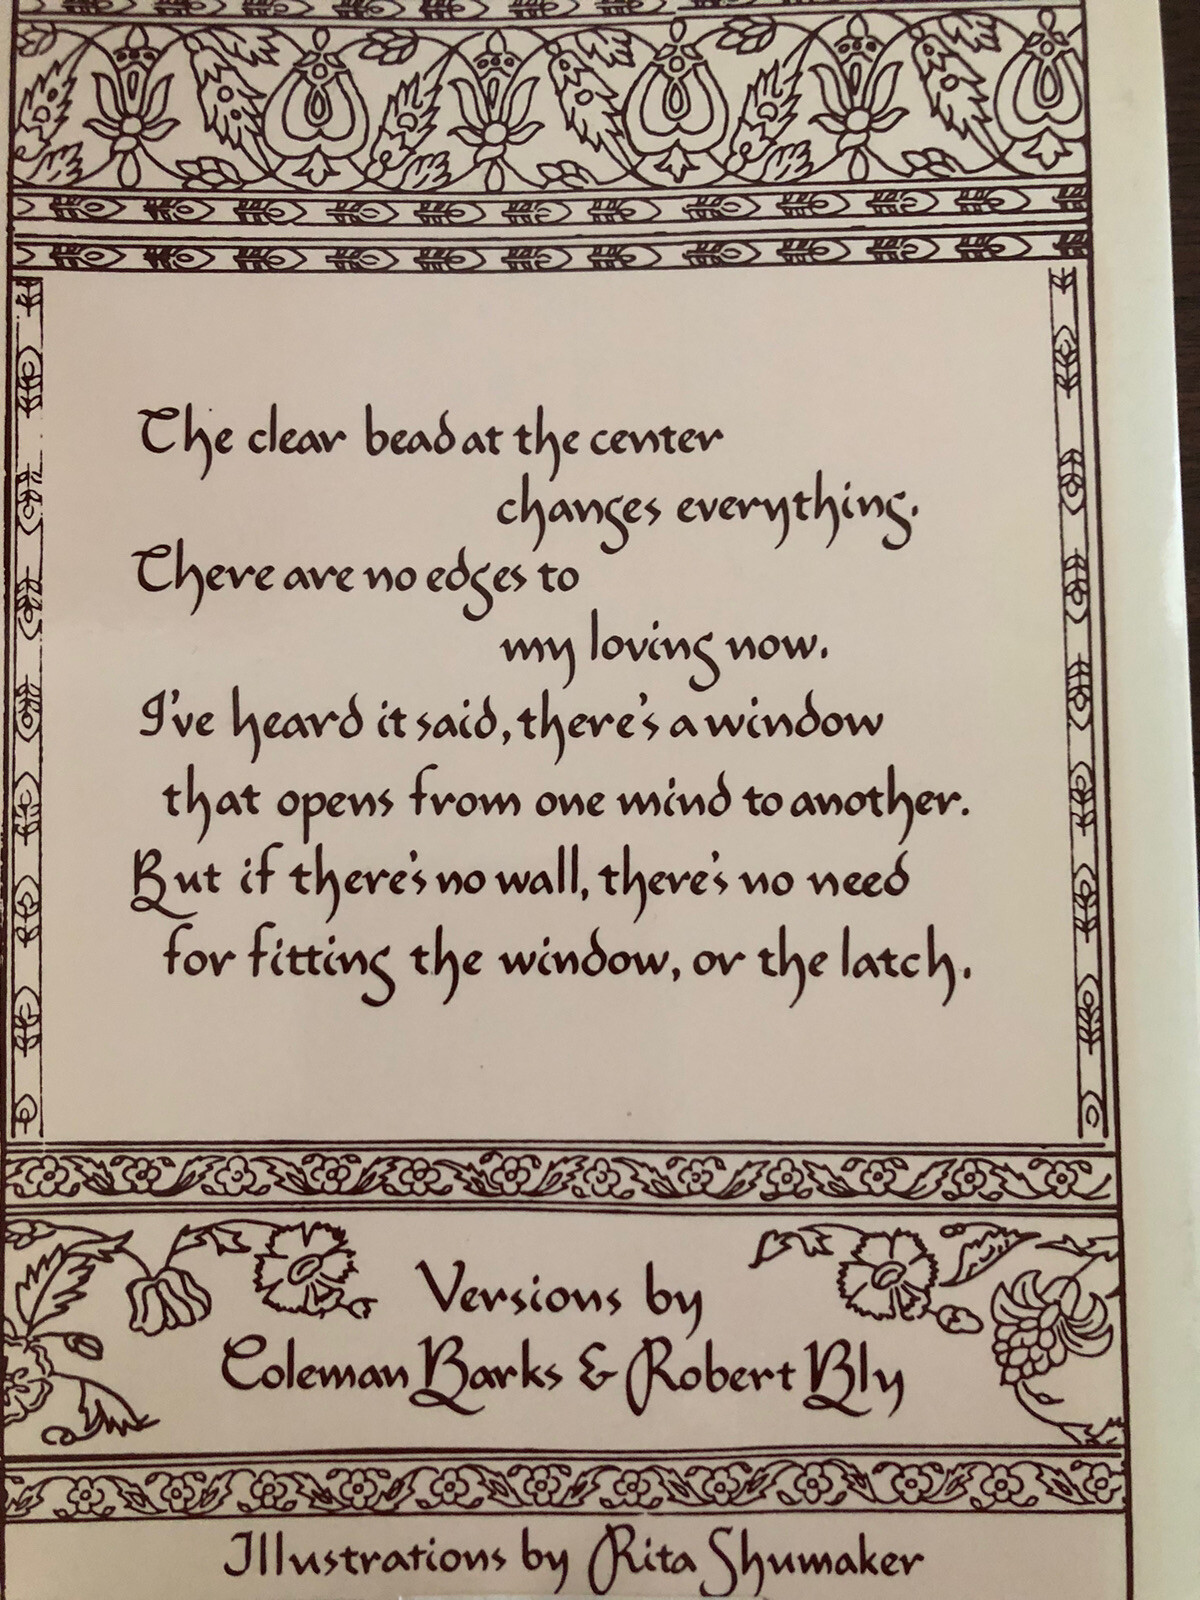 The clear bead at the center
changes everything.
There are no edges to
my loving now.
I've heard it said, there's a window
that opens from one mind to another.
But if there's no wall, there's no need
for fitting the window, or the latch.
Versions by
Coleman Barks & Robert Bly
Illustrations by Rita Shumaker